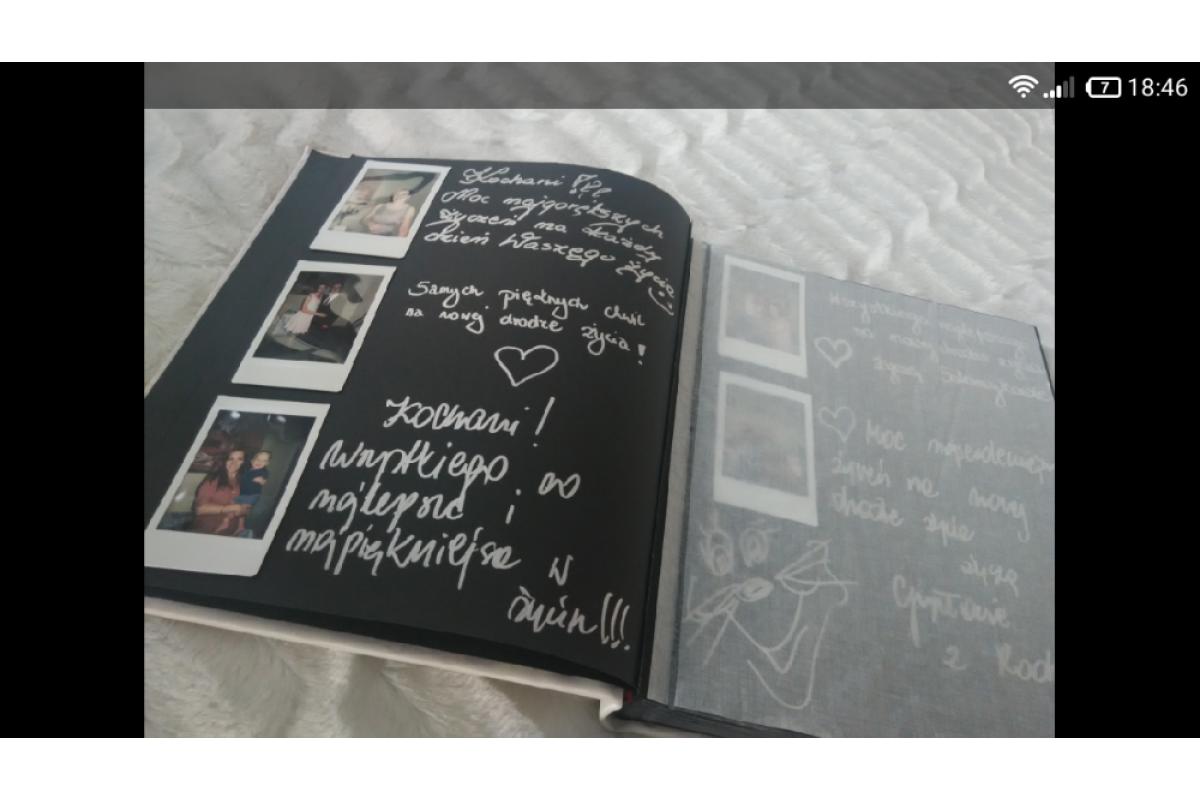 7
18:46
Kochani !!!
Moc najgorętszych
życzeń na każdy
dzień Waszego życia
Samych pięknych chwil
na nowej drodze życia!
Kochani!
Wszystkiego co
najlepsze i
najpiękniejsze w
życiu!!!
Wszystkiego najlepszego
na nowej drodze życia
życzą
Moc
na nowej
drodze życia
życzą
z